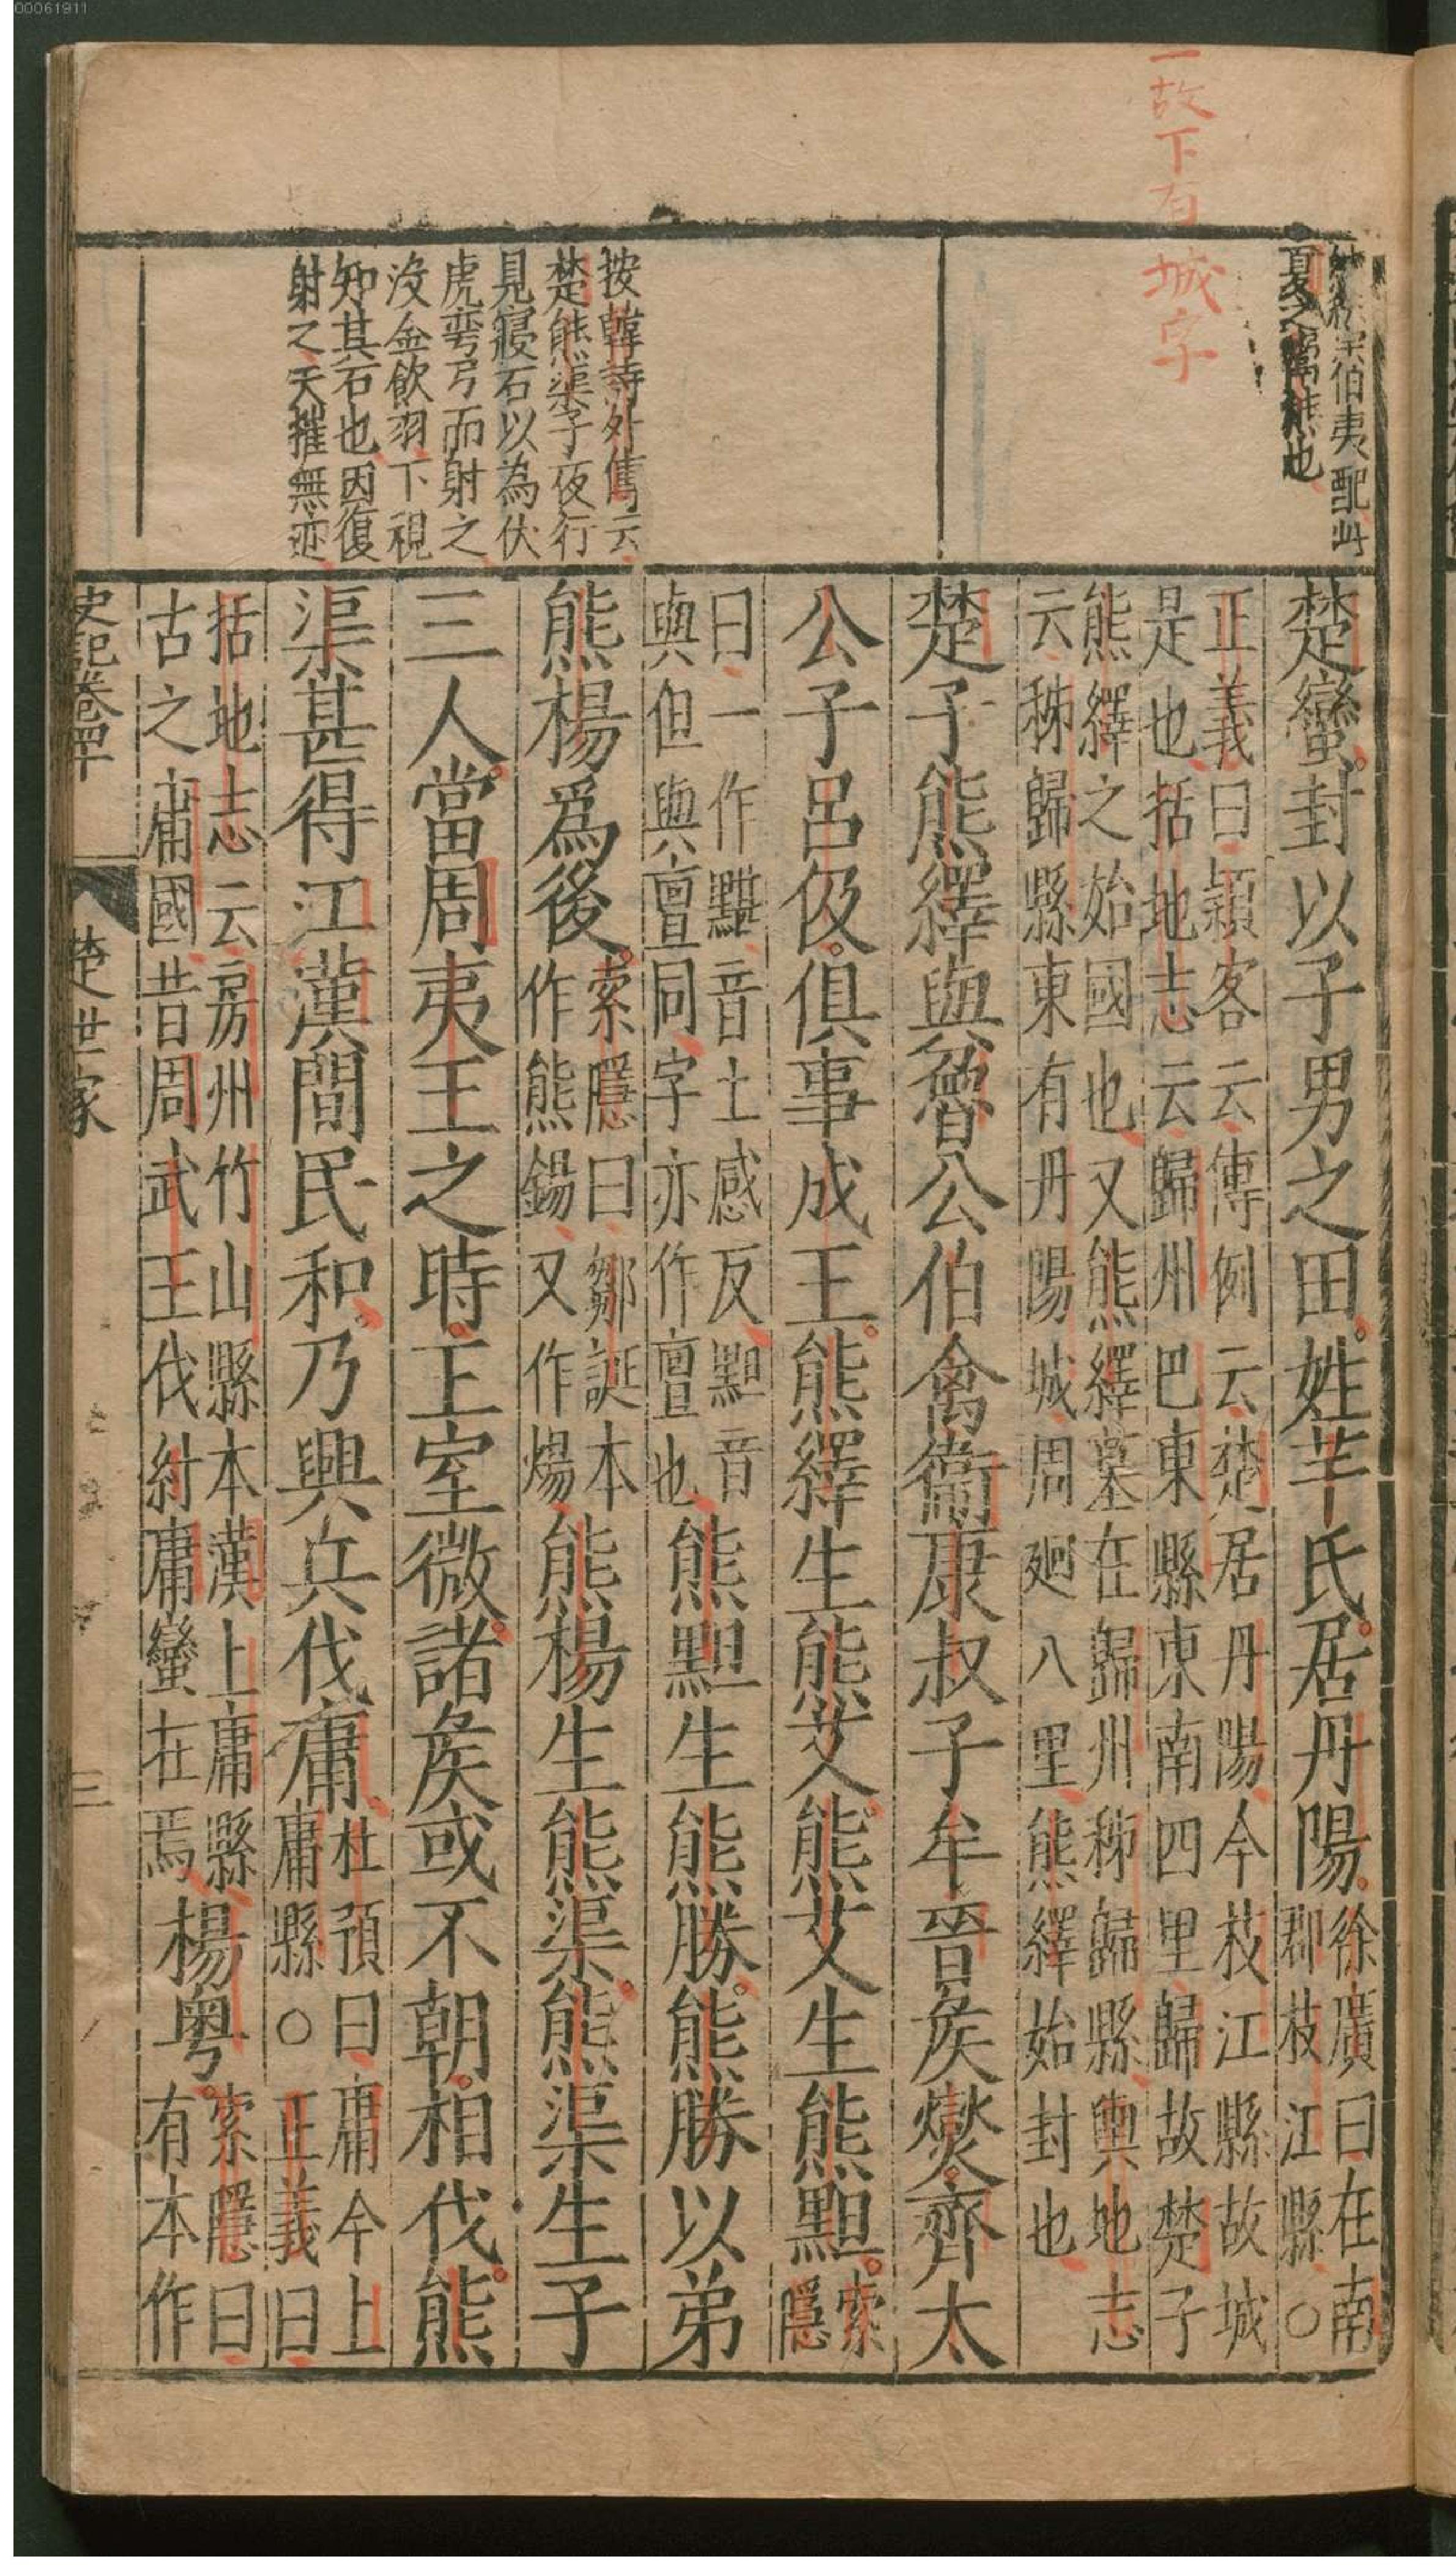 00061911
一故下有城字
伯夷配
夏之
也
按韓詩外傳云
楚熊渠子夜行
見寢石以為伏
虎彎弓而射之
沒金飲羽下視
知其石也因復
射之矢摧無迹
楚蠻封以子男之田姓芈氏居丹陽徐廣曰在南
郡枝江縣○
正義曰潁容云傳例云楚居丹陽今枝江縣故城
是也括地志云歸州巴東縣東南四里歸故楚子
熊繹之始國也又熊繹墓在歸州秭歸縣輿地志
云秭歸縣東有丹陽城周迴八里熊繹始封也
楚子熊繹與魯公伯禽衞康叔子牟晉矦燮齊太
公子呂伋俱事成王熊繹生熊艾熊艾生熊䵣索
隱
曰一作黮音土感反䵣音
與但與亶同字亦作亶也熊䵣生熊勝熊勝以弟
熊楊爲後索隱曰鄒誕本
作熊鍚又作煬熊楊生熊渠熊渠生子
三人當周夷王之時王室微諸矦或不朝相伐熊
渠甚得江漢間民和乃興兵伐庸杜預曰庸今上
庸縣○正義曰
括地志云房州竹山縣本漢上庸縣
古之庸國昔周武王伐紂庸蠻在焉楊粤索隱曰
有本作
史記卷四十
楚世家
三